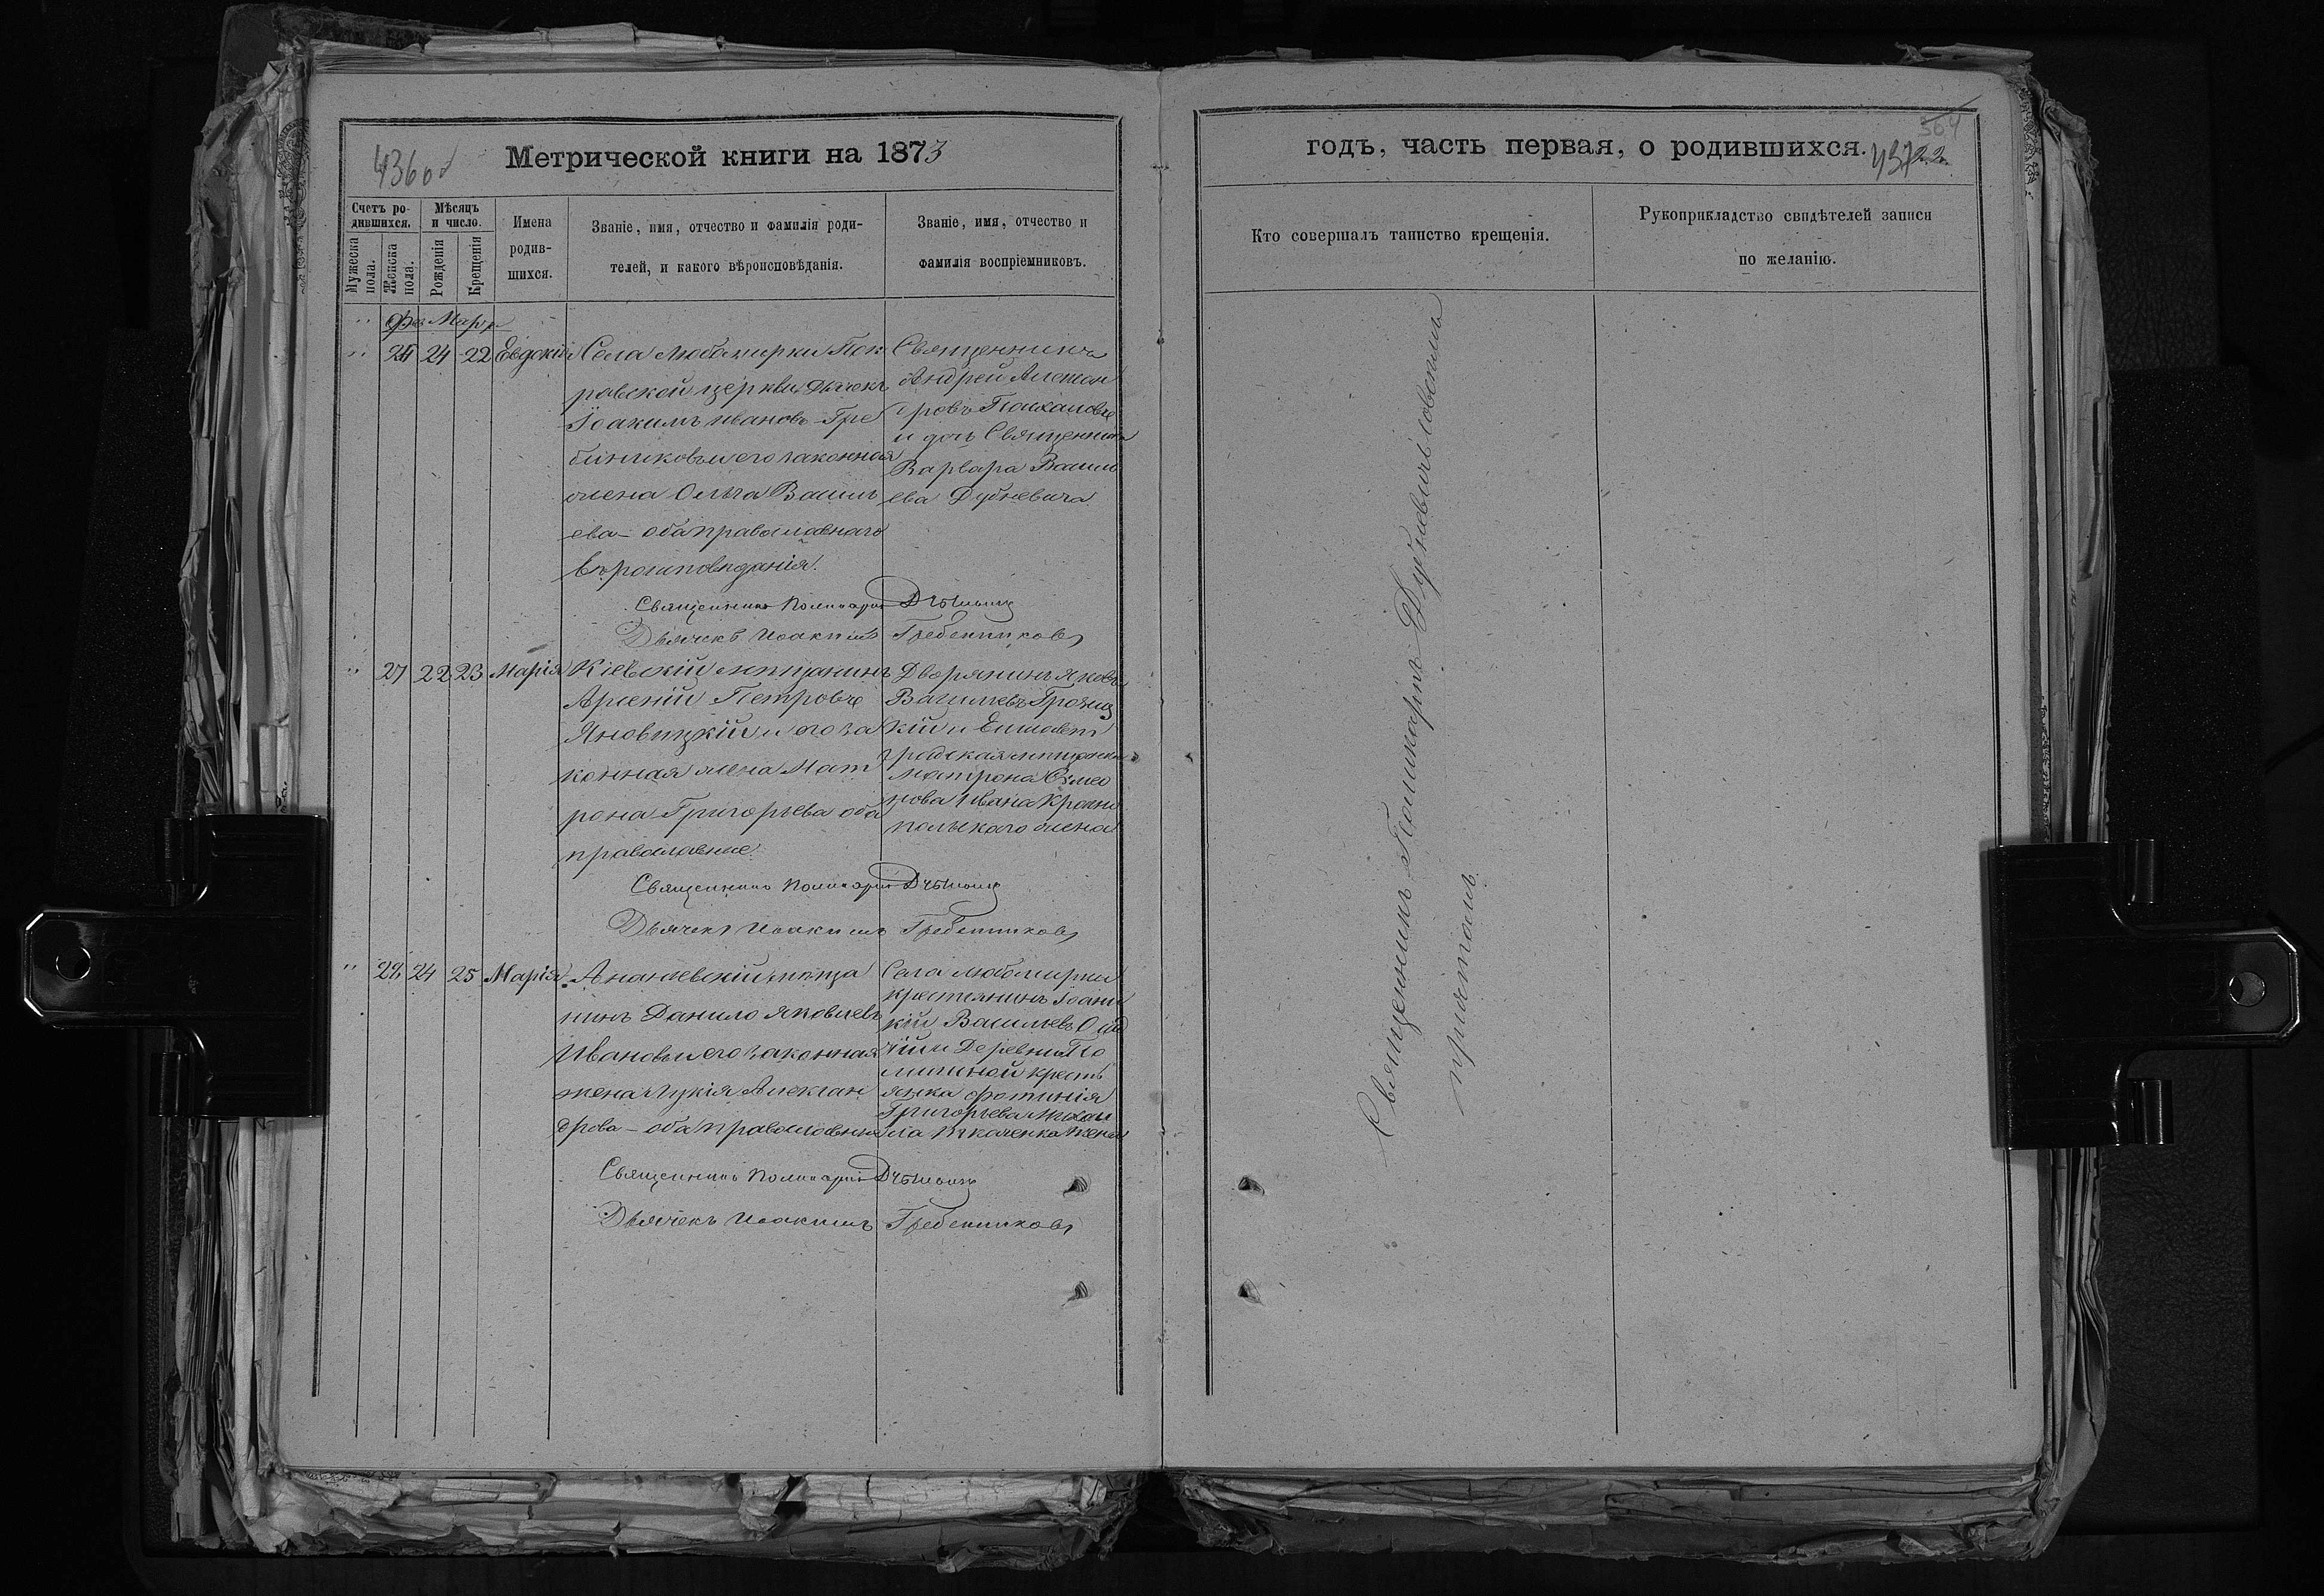 436 об
Метрической книги на 1873
Счетъ ро-
дившихся.
Мѣсяцъ
и число.
Имена
родив-
шихся.
Званіе, имя, отчество и фамилія роди-
телей, и какого вѣроисповѣданія.
Званіе, имя, отчество и
фамилія воспріемниковъ.
Мужеска
пола.
Женска
пола.
Рожденія
Крещенія
Фев Марта
24 22 Евдокія
Села Любомирки Пок
ровской церкви Дьячекъ
Іоакимъ Ивановъ Гре
бинниковъ и его законная
жена Ольга Василь
ева - оба православнаго
вѣроисповѣданія.
Священникъ
Андрей Алексан
дровъ
и дочь Священника
Варвара Василь
ева Дубневича
Священникъ Поликарпъ Дубневичъ
Дьячекъ Иоакимъ Гребенниковъ
27 22 23 Марія
Кіевскій мѣщанинъ
Арсеній Петровъ
Яновицкій и его за
конная жена Мат
рона Григорьева оба
православные.
Дворянинъ Яковъ
Васильевъ
кій и Елисавет
градская мѣщанка
Матрона Симео
нова Ивана
польскаго жена
Священникъ Поликарпъ Дубневичъ
Дьячекъ Иоакимъ Гребенниковъ
28 24 25 Марія
Ананьевскій мѣща
нинъ Данило Яковлевъ
Ивановъ и его законная
жена Лукія Алексан
дрова - оба православные
Села Любомирки
крестьянинъ Іоанни
кій Васильевъ
и деревни
крестъ
янка Фотинія
Григорьева Михаи
ла Ткаченка жена
Священникъ Поликарпъ Дубневичъ
Дьячекъ Иоакимъ Гребенниковъ
годъ, часть первая, о родившихся.
564
437
Кто совершалъ таинство крещенія.
Рукоприкладство свидѣтелей записи
по желанію.
Священникъ Поликарпъ Дубневичъ совершилъ